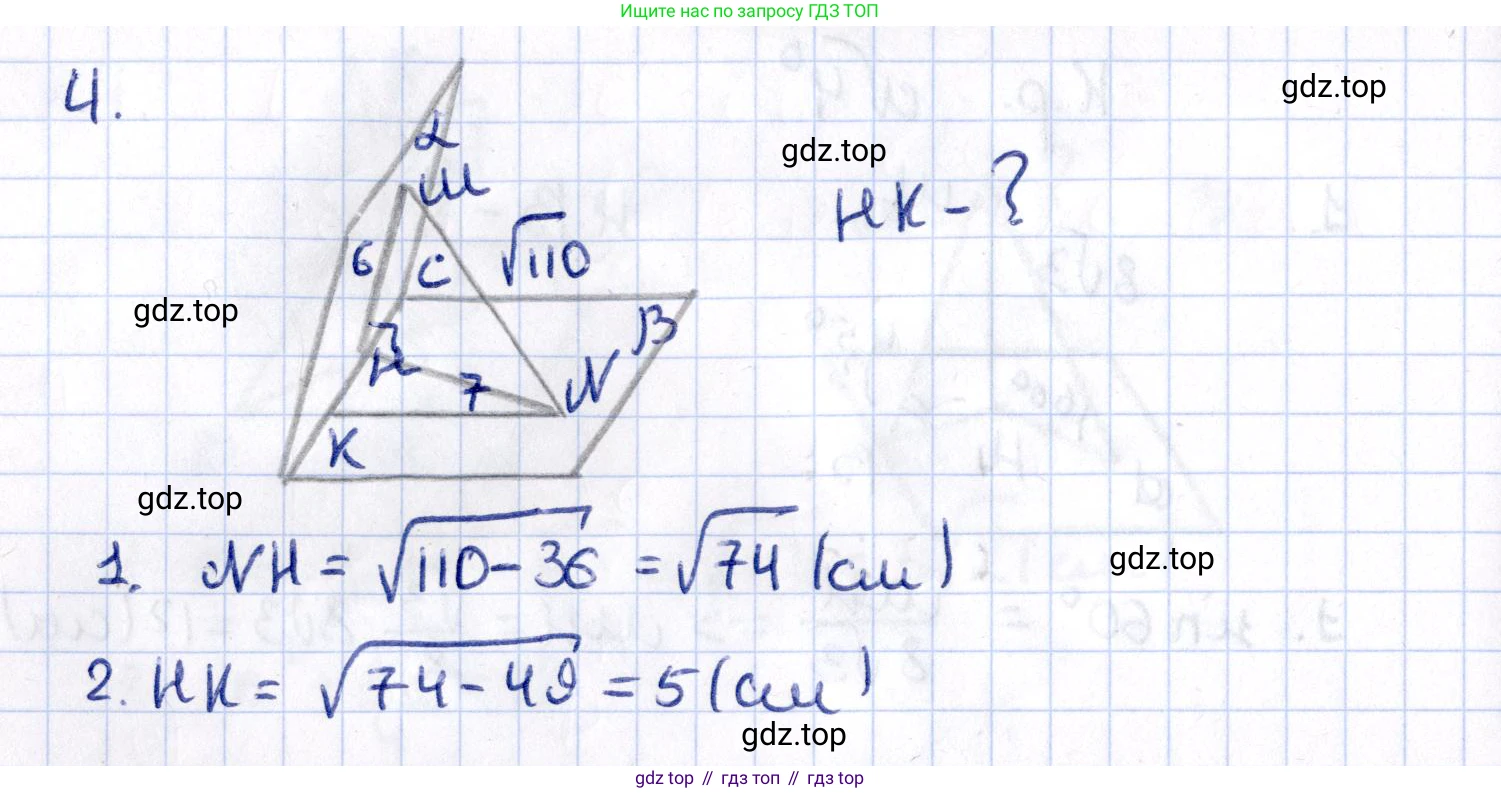 Ищите нас по запросу ГДЗ ТОП
4.
gdz.top
α
gdz.top
м
НК - ?
6
√110
C
gdz.top
β
H
7
N
K
gdz.top
1. NH = √110-36 = √74 (см)
gdz.top
2. НК = √74-49 = 5 (см)
gdz.top
gdz top // гдз топ // гдз top